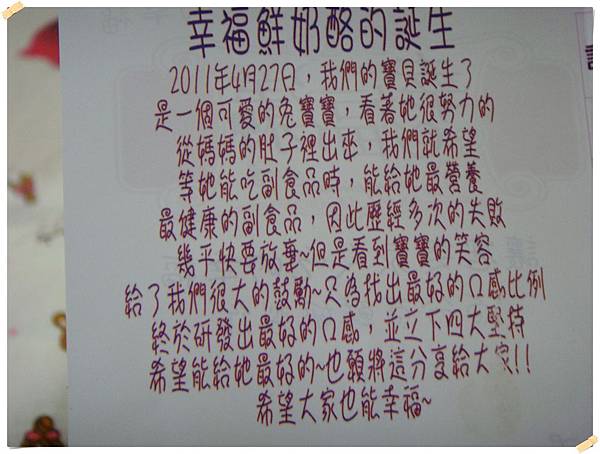 幸福鮮奶酪的誕生
2011年4月27日，我們的寶貝誕生了
是一個可愛的兔寶寶，看著她很努力的
從媽媽的肚子裡出來，我們就希望
等她能吃副食品時，能給她最營養
最健康的副食品，因此歷經多次的失敗
幾乎快要放棄~但是看到寶寶的笑容
給了我們很大的鼓勵~只為找出最好的口感比例
終於研發出最好的口感，並立下四大堅持
希望能給她最好的~也願將這分享給大家!!
希望大家也能幸福~